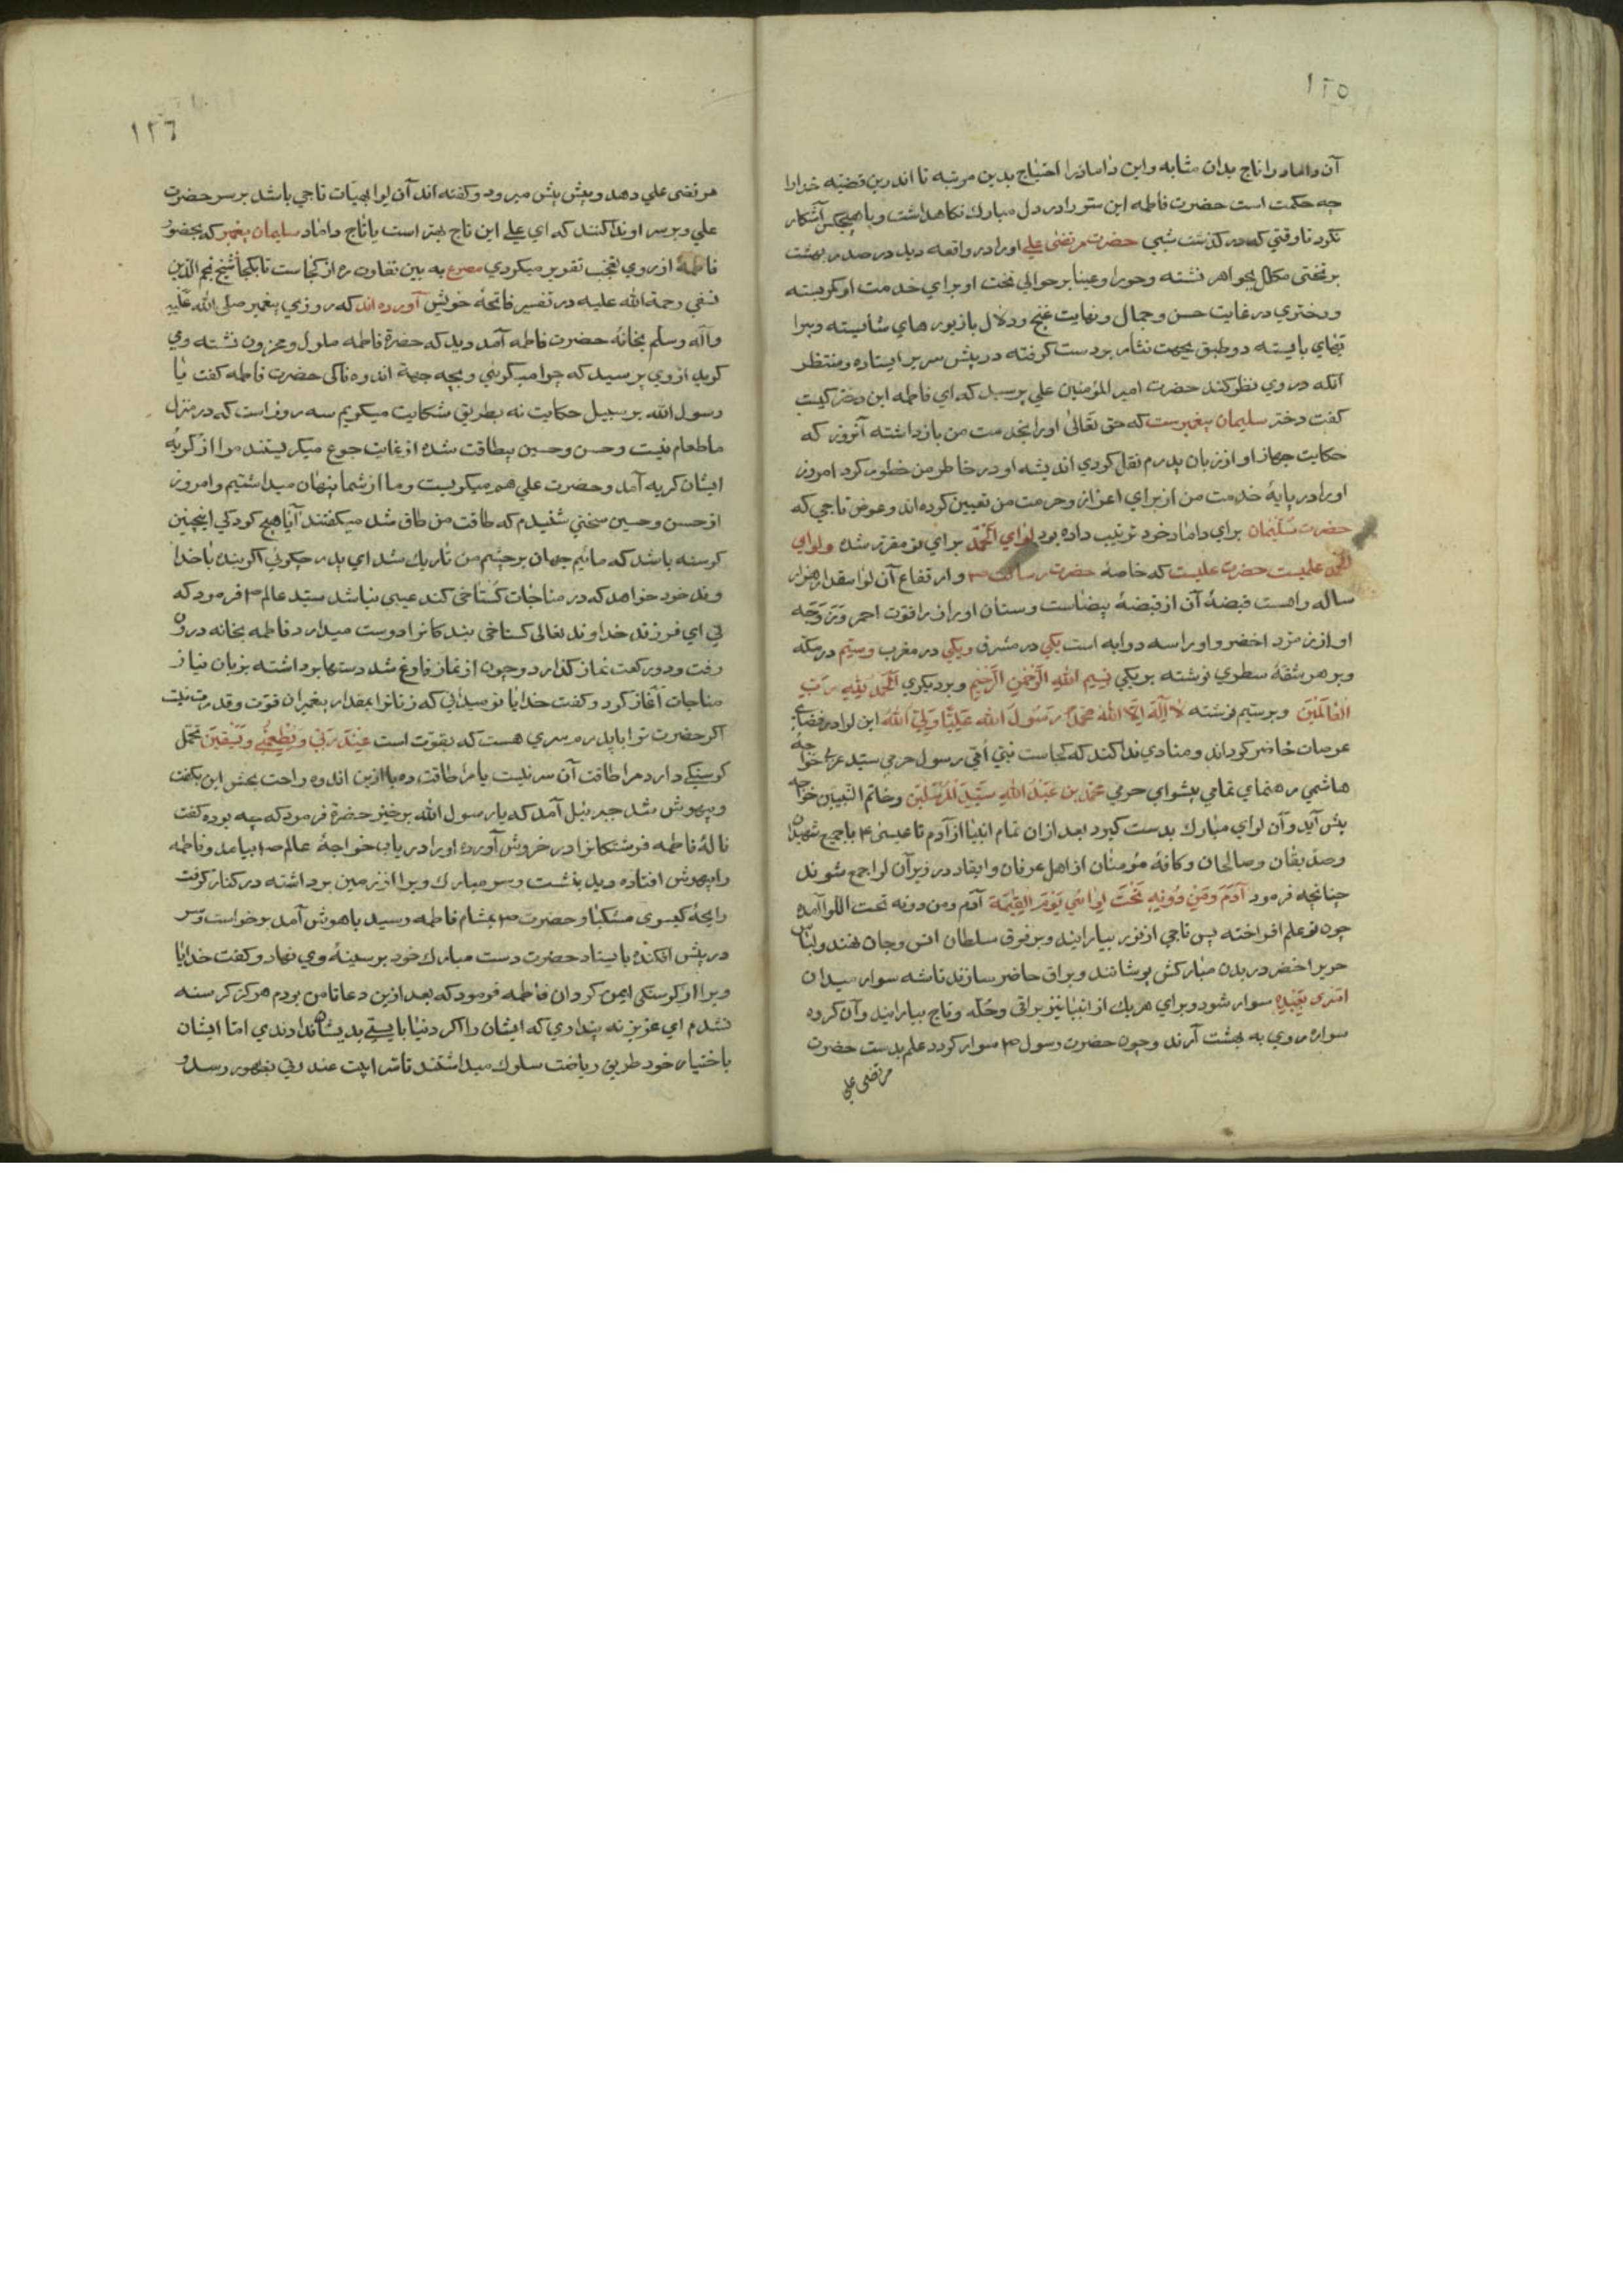 ١٢٥
آن داماد را تاج بدان مثابه و این داماد را احتیاج بدین مرتبه تا اندرین قضیه خدا را
چه حکمت است حضرت فاطمه این ستر را در دل مبارک نکاهداشت و با هیچکس آشکار
نکرد تا وقتی که در کذشت شبی حضرت مرتضی علی او را در واقعه دید در صدر بهشت
بر تختی مکلل بجواهر نشسته و حورا و عینا بر حوالی تخت او برای خدمت او کمر بسته
و دختری در غایت حسن و جمال و نهایت غنج و دلال با زیورهای شایسته و پیرا
یهای بایسته دو طبق بجهت نثار بر دست کرفته در پیش سریر ایستاده و منتظر
آنکه در وی نظر کند حضرت امیر المؤمنین علی پرسید که ای فاطمه این دختر کیست
کفت دختر سلیمان پیغمبرست که حق تعالی او را بخدمت من بازداشته آنروز که
حکایت جهاز او از زبان پدرم نقل کردی اندیشه او در خاطر من خطور کرد امروز
او را در پایهٔ خدمت من از برای اعزاز و حرمت من تعیین کرده‌اند و عوض تاجی که
حضرت سلیمان برای داماد خود ترتیب داده بود لوای الحمد برای تو مقرر شده و لوای
الحمد علمیست حضرت علیست که خاصهٔ حضرت رسالت ص و ارتفاع آن لوا مقدار هزار
ساله راهست قبضهٔ آن از قبضهٔ بیضاست و سنان او از یاقوت احمر و
او از زمرد اخضر و او را سه دوابه است یکی در مشرق و یکی در مغرب و سیم در مکه
و بر هر شقهٔ سطری نوشته بر یکی بسم الله الرحمن الرحیم و بر دیکری الحمد لله رب
العالمین و بر سیم نوشته لا اله الا الله محمد رسول الله علیا ولی الله این لوا در فضای
عرصات حاضر کردانند و منادی ندا کند که کجاست نبی امی رسول حرمی سید عربی خواجهٔ
هاشمی رهنمای تمامی پیشوای حرمی محمد بن عبد الله سید المرسلین و خاتم النبیین خواجه
پیش آید و آن لوای مبارک بدست کیرد بعد از آن تمام انبیا از آدم تا عیسی ع با جمیع شهیدان
و صدیقان و صالحان و کافهٔ مؤمنان از اهل عرفان و ایقاد در زیر آن لوا جمع شوند
چنانچه فرمود آدم و من دونه تحت لوائی یوم القیمة آدم و من دونه تحت اللوا آمده
چون تو علم افراخته پس تاجی از نور بیارایند و بر فرق سلطان انس و جان نهند و لباس
حریر اخضر در بدن مبارکش پوشانند و براق حاضر سازند تا شه سوار میدان
اسری بعبده سوار شود و برای هر یک از انبیا نیز براقی و حله و تاج بیارایند و آن کروه
سواره روی به بهشت آرند و چون حضرت رسول ص سوار کردد علم بدست حضرت
مرتضی علی
١٢٦
مرتضی علی دهد و پیش پیش میرود و کفته‌اند آن لوا بهیأت تاجی باشد بر سر حضرت
علی و بر سر او ندا کنند که ای علی این تاج بهتر است یا تاج داماد سلیمان پیغمبر که بحضور
فاطمهٔ از روی تعجب تقریر میکردی مصرع به بین تفاوت ره از کجاست تا بکجا شیخ نجم الدین
نسفی رحمة الله علیه در تفسیر فاتحهٔ خویش آورده‌اند که روزی پیغمبر صلی الله علیه
وآله وسلم بخانهٔ حضرت فاطمه آمد دید که حضرة فاطمه ملول و محزون نشسته و می
کرید از وی پرسید که چرا میکریی و بچه جهة اندوه ناکی حضرت فاطمه کفت یا
رسول الله بر سبیل حکایت نه بطریق شکایت میکویم سه روز است که در منزل
ما طعام نیست و حسن و حسین بیطاقت شده از غایت جوع میکریستند مرا از کریهٔ
ایشان کریه آمد و حضرت علی هم میکریست و ما از شما پنهان میداشتیم و امروز
از حسن و حسین سخنی شنیدم که طاقت من طاق شد میکفتند آیا هیچ کودکی اینچنین
کرسنه باشد که مائیم جهان بر چشم من تاریک شد ای پدر چکوئی اکر بنده با خدا
وند خود خواهد که در مناجات کستاخی کند عیبی نباشد سید عالم ص فرمود که
نی ای فرزند خداوند تعالی کستاخی بندکانرا دوست میدارد فاطمه بخانه درون
رفت و دو رکعت نماز کذارد و چون از نماز فارغ شد دستها برداشته بزبان نیاز
مناجات آغاز کرد و کفت خدایا تو میدانی که زنانرا بمقدار پیغمبران قوت و قدرت نیست
اکر حضرت ترا با پدرم سری هست که بقوت است عند ربی و یطعمنی و یسقین تحمل
کرسنکی دارد مرا طاقت آن سر نیست یا مرا طاقت ده یا ازین اندوه راحت بخش این بکفت
و بیهوش شد جبرئیل آمد که یا رسول الله برخیز حضرة فرمود که چه بوده کفت
نالهٔ فاطمه فرشتکانرا در خروش آورده او را دریاب خواجهٔ عالم ص بیامد و فاطمه
را بیهوش افتاده دید بنشست و سر مبارک ویرا از زمین برداشته در کنار کرفت
رایحهٔ کیسوی مشکبار حضرت ص بمشام فاطمه رسید باهوش آمد برخواست و سر
در پیش افکنده بایستاد حضرت دست مبارک خود بر سینهٔ وی نهاد و کفت خدایا
ویرا از کرسنکی ایمن کردان فاطمه فرمود که بعد ازین دعا تا من بودم هرکز کرسنه
نشدم ای عزیز نه پنداری که ایشان را اکر دنیا بایستی بدیشان ندادندی اما ایشان
باختیار خود طریق ریاضت سلوک میداشتند تا سر ابیت عند ربی بظهور رسد و